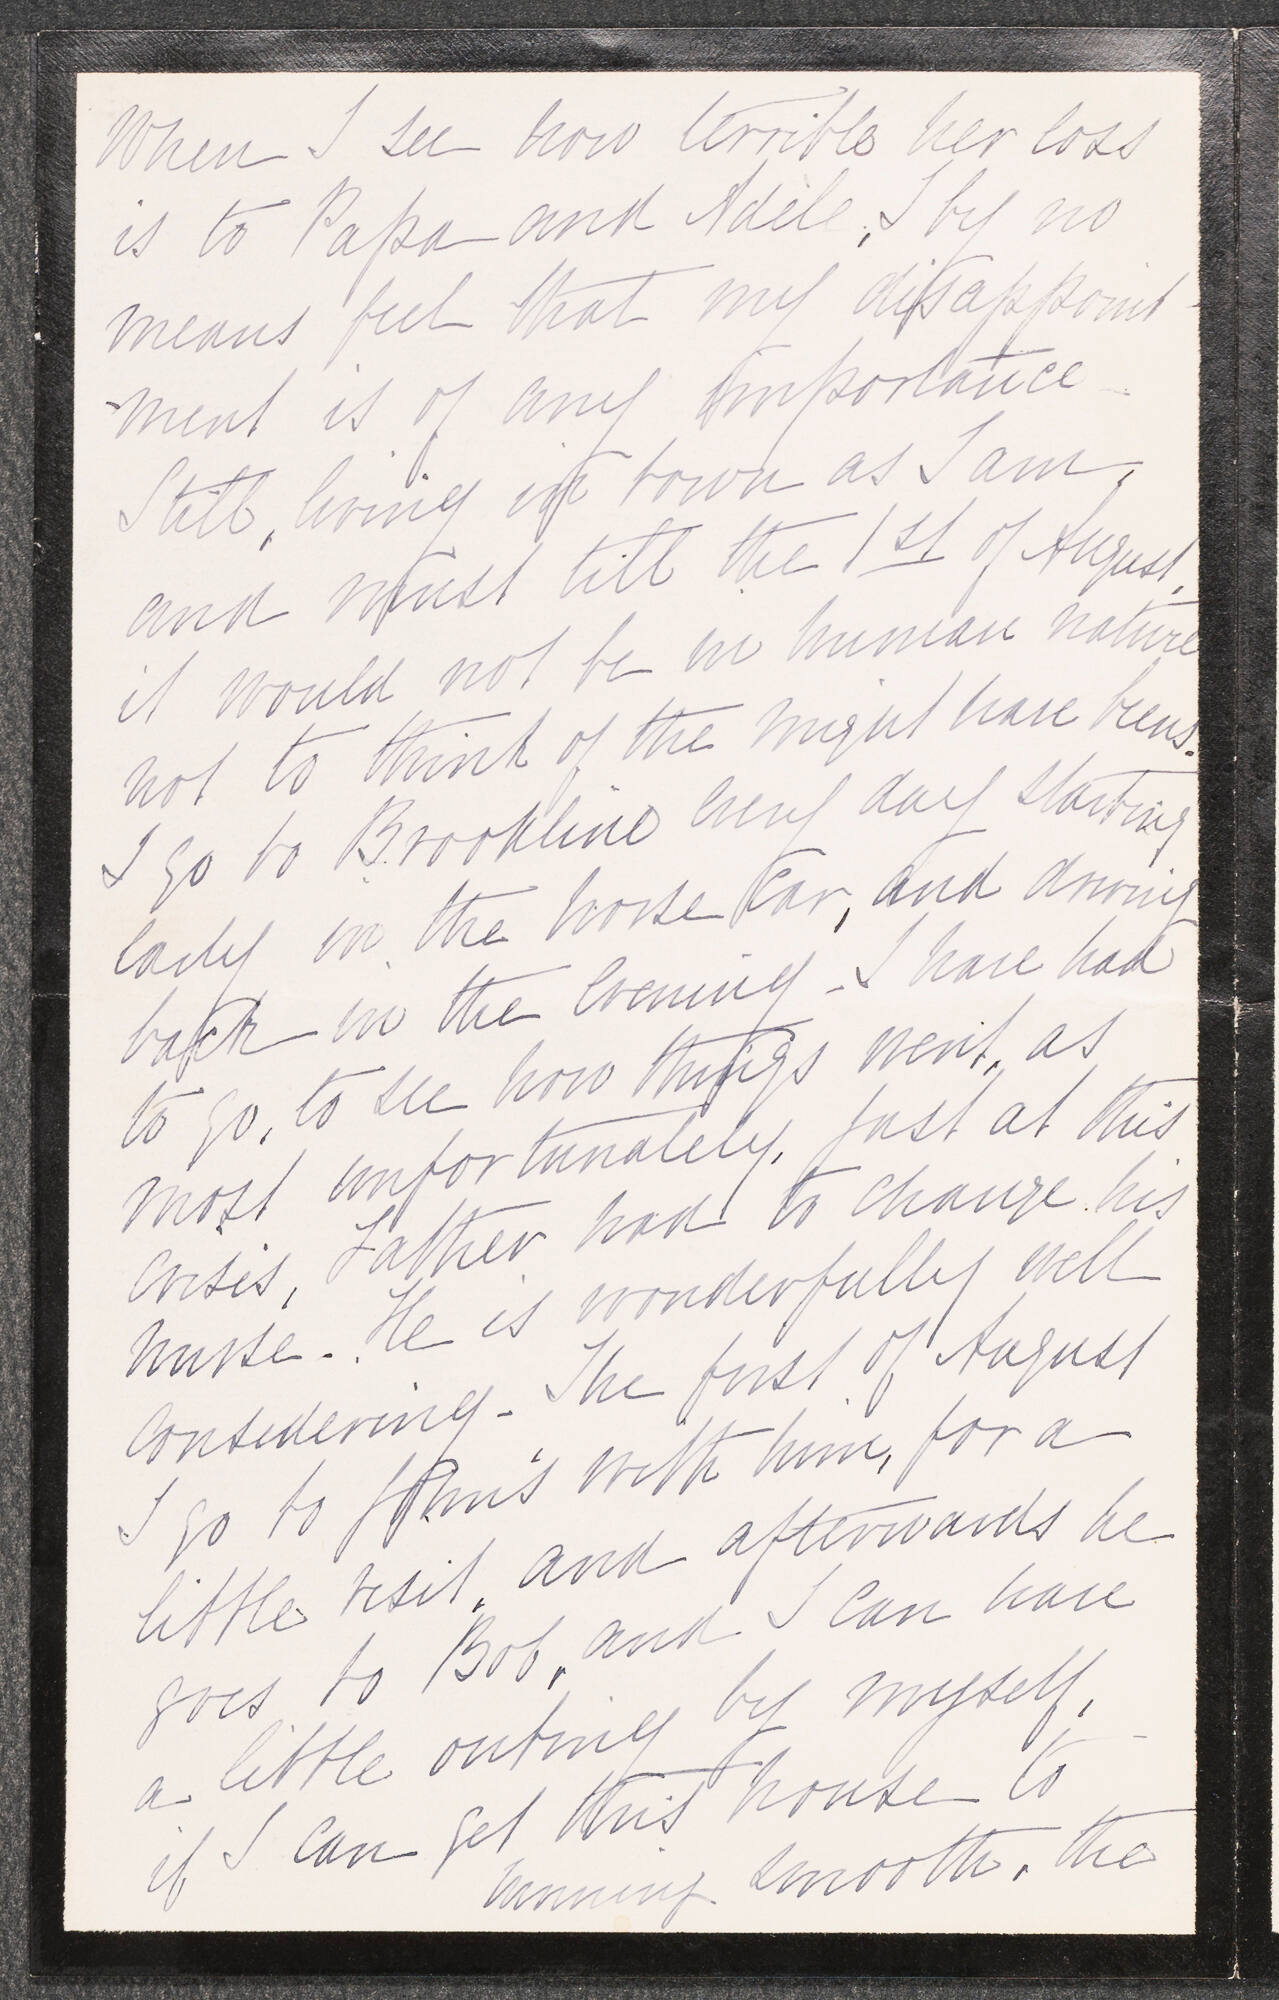 When I see how terrible her loss
is to Papa and Adèle, I by no
means feel that my disappoint-
ment is of any importance -
Still, living in town as I am,
and must till the 1st of August,
it would not be in human nature
not to think of the might have beens.
I go to Brookline every day starting
early in the horse car, and driving
back in the evening - I have had
to go, to see how things went, as
most unfortunately, just at this
crisis, Father had to change his
nurse - He is wonderfully well
considering - The first of August
I go to John's with him, for a
little visit, and afterwards he
goes to Bob, and I can have
a little outing by myself,
if I can get this house to
running smooth, the